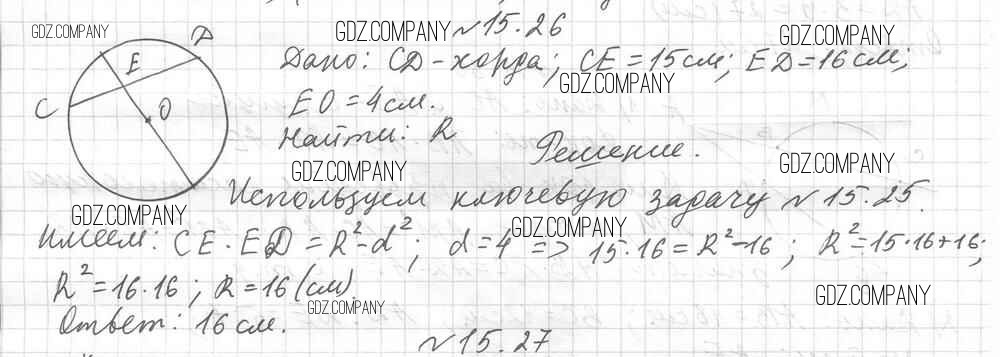 GDZ.COMPANY
GDZ.COMPANY №15.26
GDZ.COMPANY
D
E
C
O
Дано: CD - хорда; CE = 15 см; ED = 16 см;
GDZ.COMPANY
EO = 4 см.
Найти: R
Решение.
GDZ.COMPANY
GDZ.COMPANY
Используем ключевую задачу №15.25.
GDZ.COMPANY
GDZ.COMPANY
Имеем: CE · ED = R² - d²; d = 4 => 15·16 = R² - 16; R² = 15·16 + 16;
R² = 16·16; R = 16 (см).
GDZ.COMPANY
GDZ.COMPANY
Ответ: 16 см.
№15.27